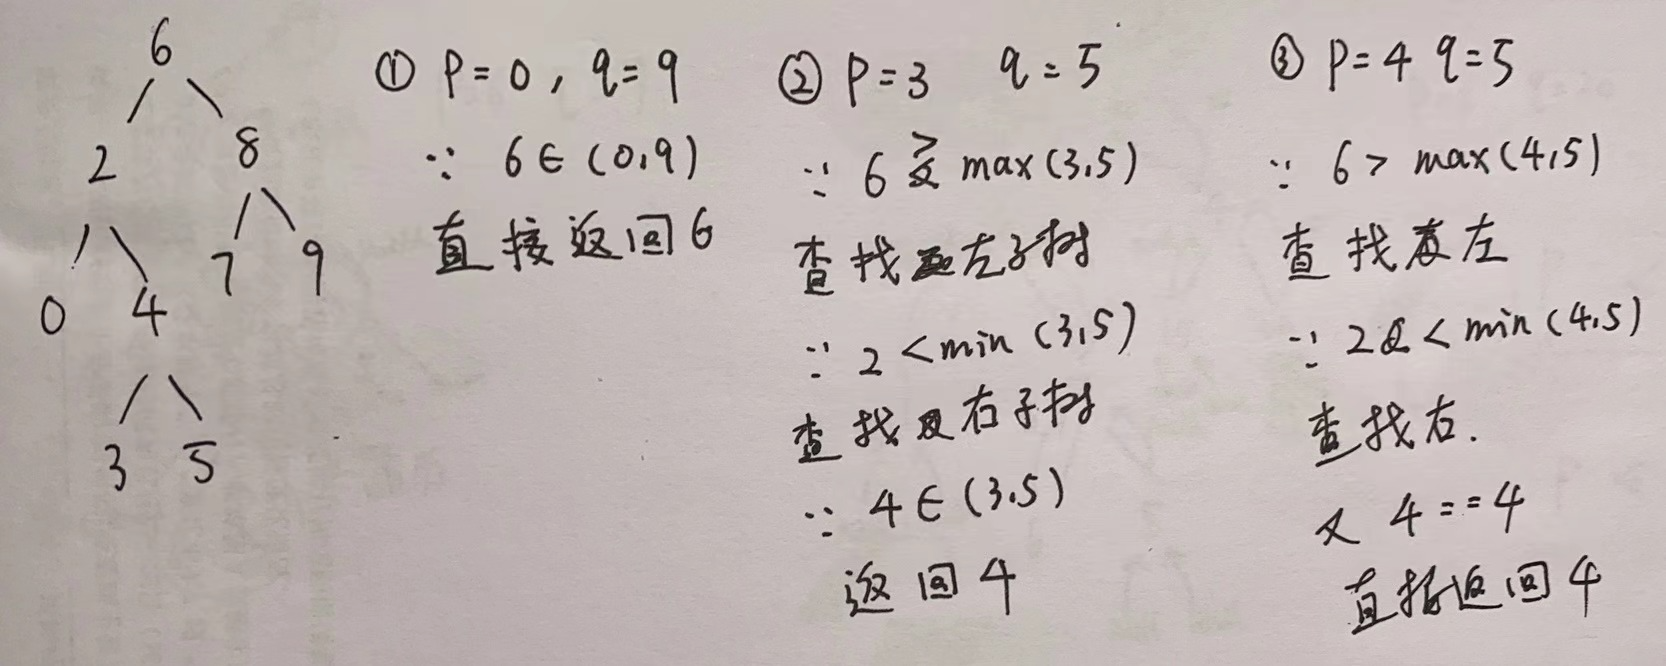 6
2 8
0 4 7 9
3 5
① P=0, q=9
∵ 6∈(0,9)
直接返回6
② P=3 q=5
∵ 6 > max(3,5)
查找左子树
∵ 2 < min (3,5)
查找右子树
∵ 4∈(3,5)
返回4
③ P=4 q=5
∵ 6 > max(4,5)
查找左
∵ 2 < min (4,5)
查找右.
又 4==4
直接返回4